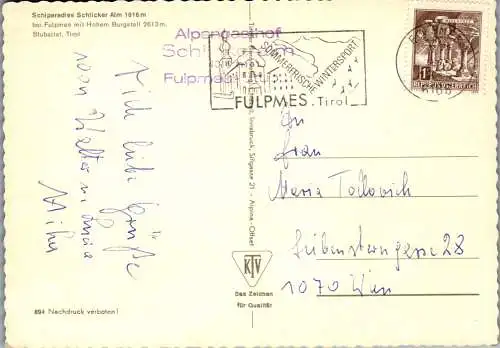 Schiparadies Schlicker Alm 1616 m
bei Fulpmes mit Hohem Burgstall 2613 m.
Stubaital, Tirol
Alpengasthof
Fulpmes
SOMMERFRISCHE WINTERSPORT
FULPMES . Tirol
REPUBLIK ÖSTERREICH
Viele liebe Grüße
von
Walter
Innsbruck, Sillgasse 21 - Alpina-Offset
An
Frau
Maria
Siebensterngasse 28
1070 Wien
KTV
Das Zeichen
für Qualität
894 Nachdruck verboten!